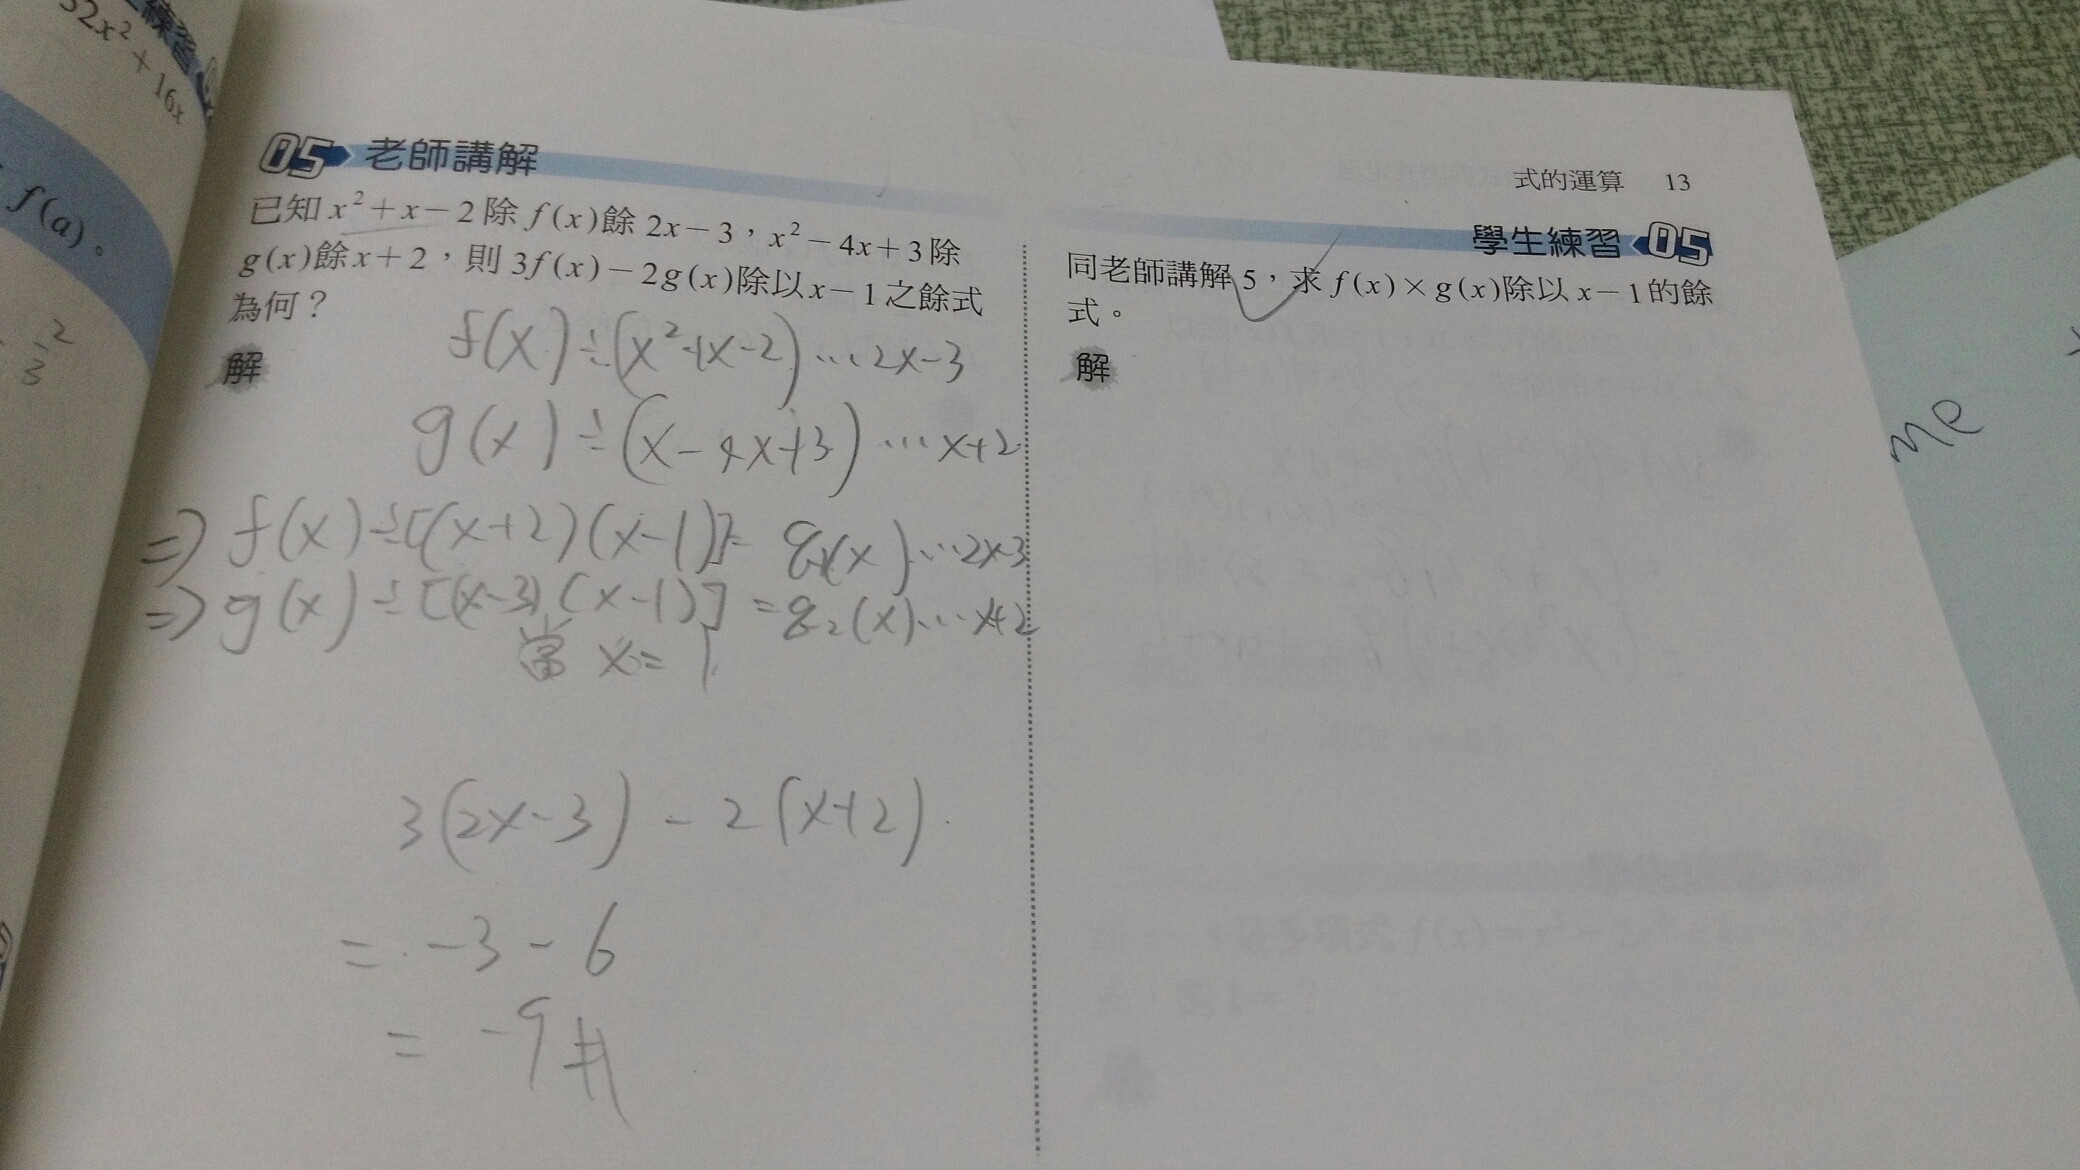 32x²+16x
f(a)。
2
3
05 老師講解
已知 x²+x-2 除 f(x) 餘 2x-3，x²-4x+3 除
g(x) 餘 x+2，則 3f(x)-2g(x) 除以 x-1 之餘式
為何？
解
f(x)÷(x²+x-2)…2x-3
g(x)÷(x-4x+3)…x+2
⇒f(x)÷[(x+2)(x-1)]=q₁(x)…2x-3
⇒g(x)÷[(x-3)(x-1)]=q₂(x)…x+2
當 x=1
3(2x-3)-2(x+2)
=-3-6
=-9#
式的運算 13
學生練習 05
同老師講解 5，求 f(x)×g(x) 除以 x-1 的餘
式。
解
me